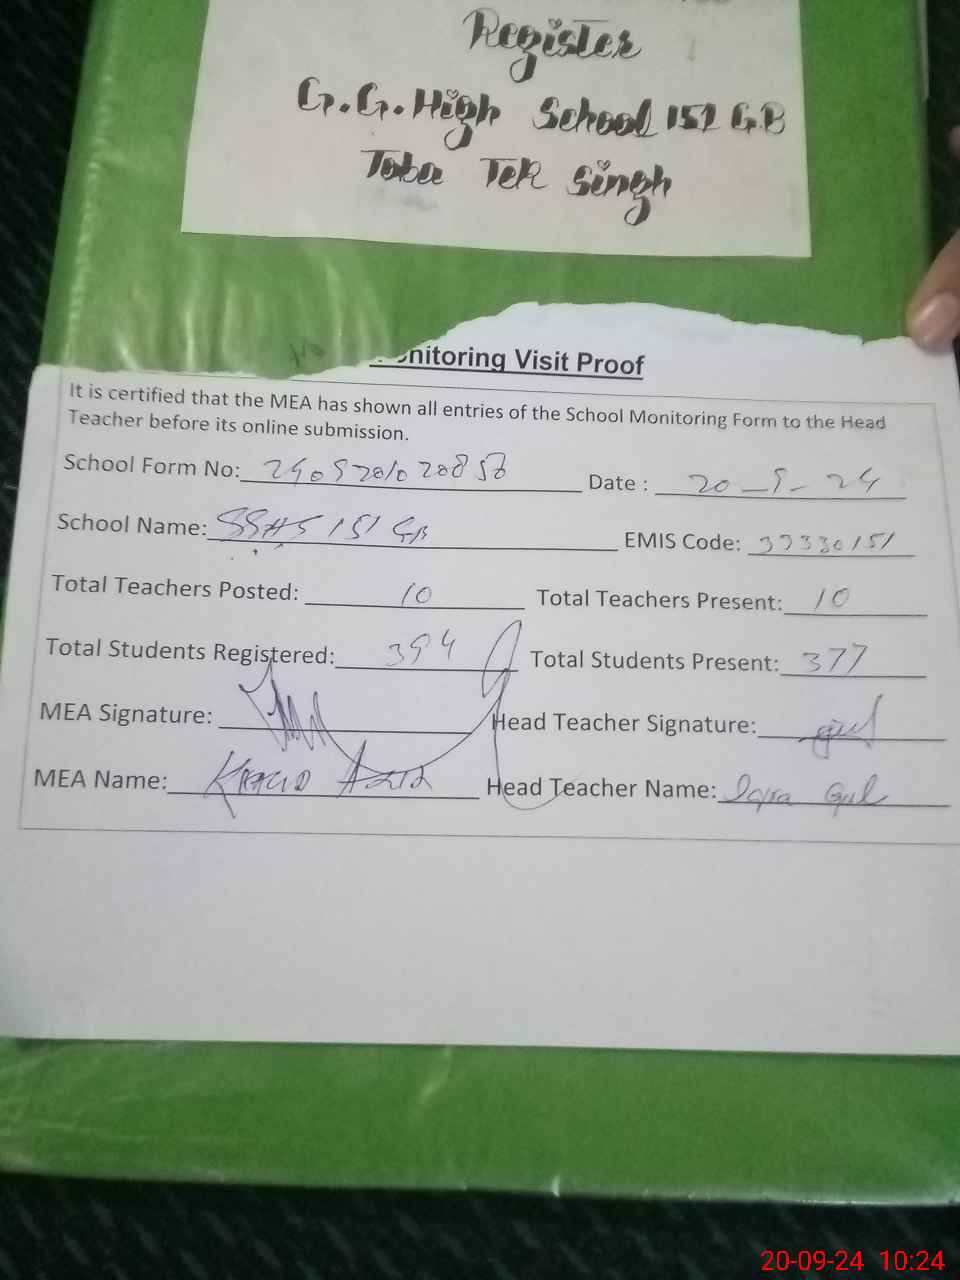 Register
G.G.High School 151 G.B
Toba Tek Singh
Monitoring Visit Proof
It is certified that the MEA has shown all entries of the School Monitoring Form to the Head
Teacher before its online submission.
School Form No: Date : 20-9-24
School Name: GGHS 151 GB EMIS Code: 33330151
Total Teachers Posted: 10 Total Teachers Present: 10
Total Students Registered: 394 Total Students Present: 377
MEA Signature: Head Teacher Signature: gul
MEA Name: Khalid Aziz Head Teacher Name: Iqra Gul
20-09-24 10:24